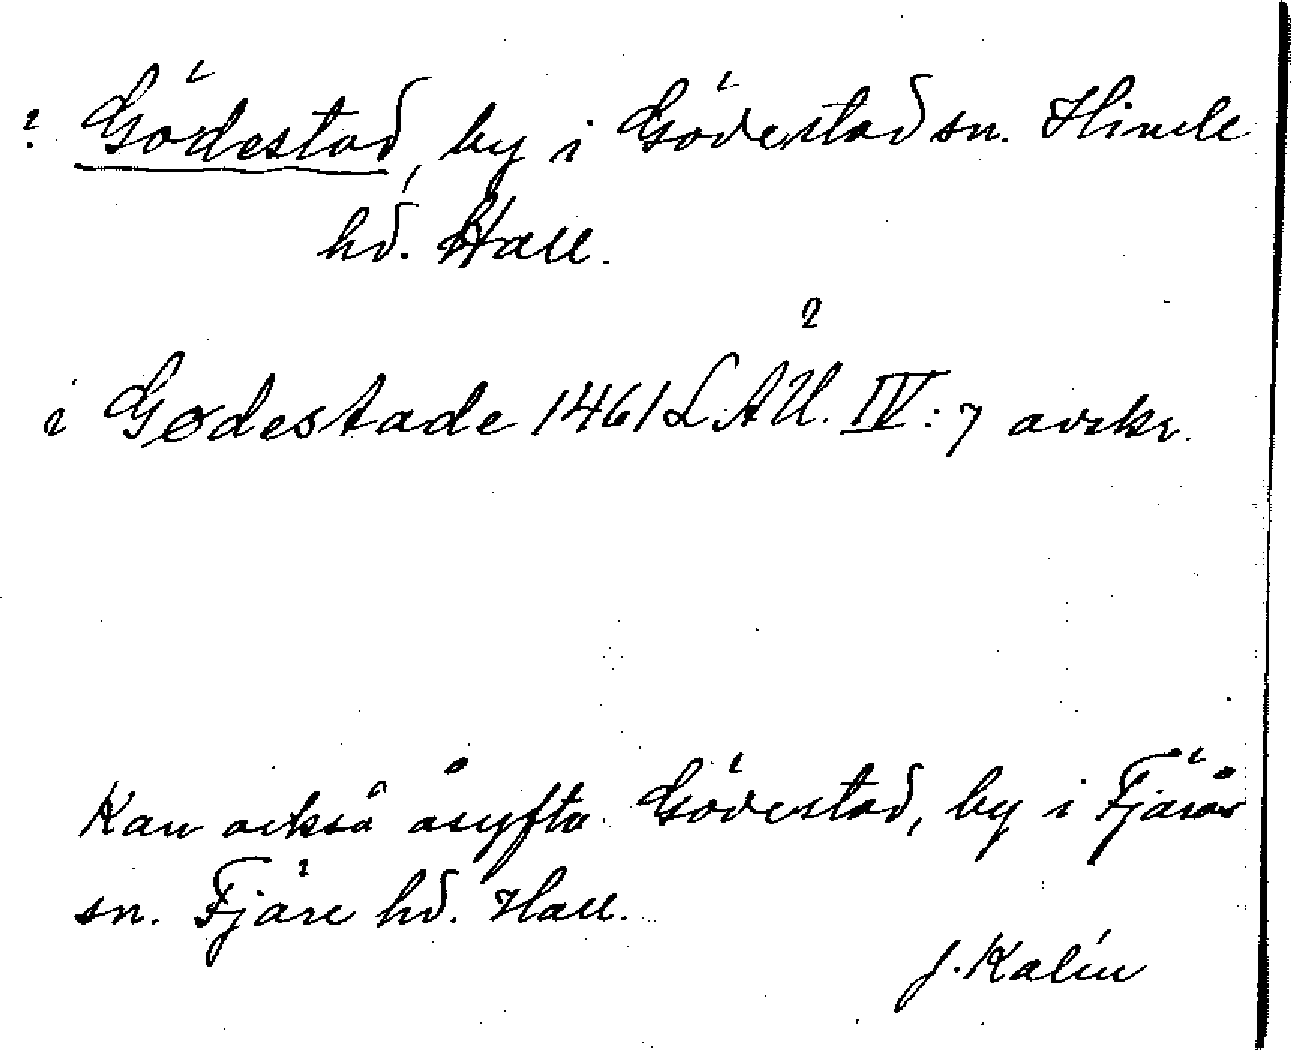 ? Gödestad, by i Gödestad sn. Himle
hd. Hall.
?
i Gødestade 1461 LAU. IV:7 avskr.
Kan också åsyfta Gödestad, by i Fjärås
sn. Fjäre hd. Hall.
J. Kalén